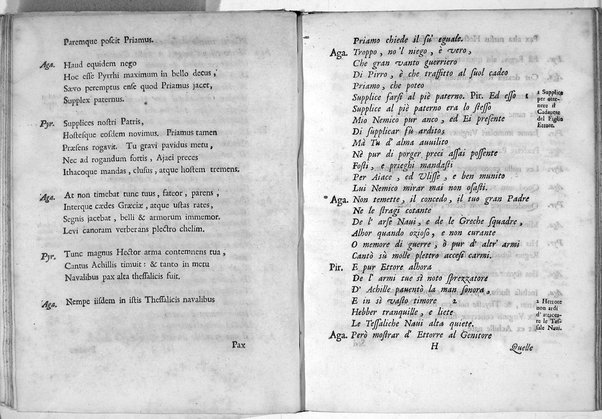 Paremque poscit Priamus.
Aga. Haud equidem nego
Hoc esse Pyrrhi maximum in bello decus,
Sævo peremptus ense quod Priamus jacet,
Supplex paternus.
Pyr. Supplices nostri Patris,
Hostesque eosdem novimus. Priamus tamen
Præsens rogavit. Tu gravi pavidus metu,
Nec ad rogandum fortis, Ajaci preces
Ithacoque mandas, clusus, atque hostem tremens.
Aga. At non timebat tunc tuus, fateor, parens,
Interque cædes Græciæ, atque ustas rates,
Segnis jacebat, belli & armorum immemor.
Levi canoram verberans plectro chelim.
Pyr. Tunc magnus Hector arma contemnens tua,
Cantus Achillis timuit: & tanto in metu
Navalibus pax alta thessalicis fuit.
Aga. Nempe iisdem in istis Thessalicis navalibus
Pax
Priamo chiede il su' eguale.
Aga. Troppo, no'l niego, è vero,
Che gran vanto guerriero
Di Pirro, è che trafitto al suol cadeo
Priamo, che poteo
Supplice farsi al piè paterno. Pir. Ed esso 1
Supplice al piè paterno era lo stesso
Mio Nemico pur anco, ed Ei presente
Di supplicar fù ardito;
Mà Tu d'alma auuilito
Nè pur di porger preci assai possente
Fosti, e prieghi mandasti
Per Aiace, ed Vlisse, e ben munito
Lui Nemico mirar mai non osasti.
1 Supplicò
per otte-
nere il
Cadauere
del Figlio
Ettore.
Aga. Non temette, il concedo, il tuo gran Padre
Ne le stragi cotante
De l'arse Naui, e de le Greche squadre,
Alhor quando ozioso, e non curante
O memore di guerre, ò pur d'altr' armi
Cantò sù molle plettro accesi carmi.
Pir. E pur Ettore alhora
De l'armi tue sì noto sprezzatore
D'Achille pauentò la man sonora,
E in sì vasto timore 2
Hebber tranquille, e liete
Le Tessaliche Naui alta quiete.
2 Hettore
non ardì
d'attacca-
re le Tes-
sale Naui.
Aga. Però mostrar d'Ettorre al Genitore
H
Quelle